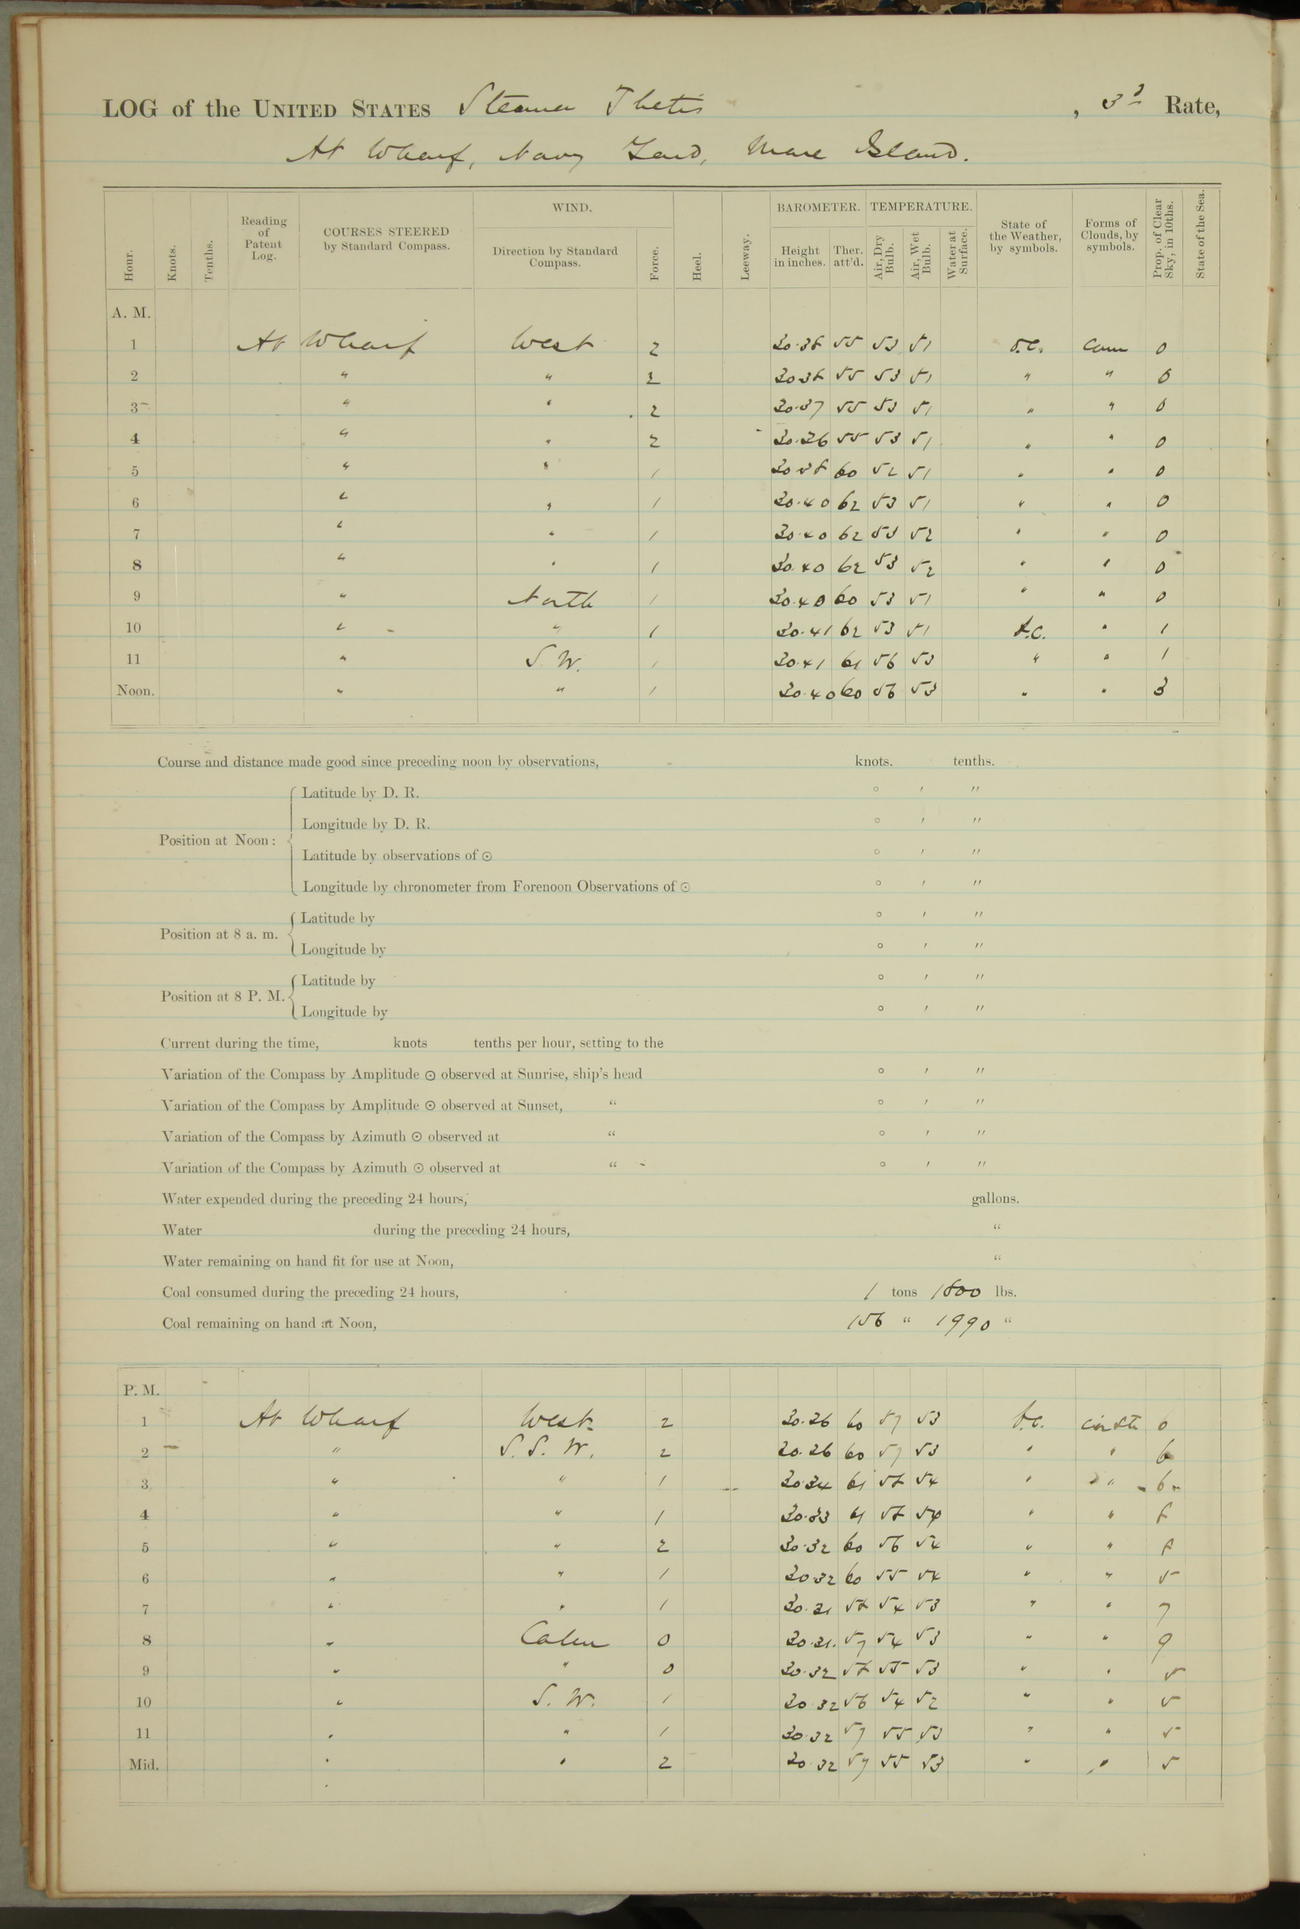 LOG of the UNITED STATES Steamer Thetis, 3d Rate,
At Wharf, Navy Yard, Mare Island.
WIND. BAROMETER. TEMPERATURE.
Hour. Knots. Tenths. Reading of Patent Log. COURSES STEERED by Standard Compass. Direction by Standard Compass. Force. Heel. Leeway. Height in inches. Ther. att'd. Air, Dry Bulb. Air, Wet Bulb. Water at Surface. State of the Weather, by symbols. Forms of Clouds, by symbols. Prop. of Clear Sky, in 10ths. State of the Sea.
A. M.
1 At Wharf West 2 30.38 55 53 51 o.c. cum 0
2 " " 2 30.38 55 53 51 " " 0
3 " " 2 30.37 55 53 51 " " 0
4 " " 2 30.36 55 53 51 " " 0
5 " " 1 30.38 60 52 51 " " 0
6 " " 1 30.40 62 53 51 " " 0
7 " " 1 30.40 62 53 52 " " 0
8 " " 1 30.40 62 53 52 " " 0
9 " North 1 30.40 60 53 51 " " 0
10 " " 1 30.41 62 53 51 b.c. " 1
11 " S.W. 1 30.41 61 56 53 " " 1
Noon. " " 1 30.40 60 56 53 " " 3
Course and distance made good since preceding noon by observations, knots. tenths.
Latitude by D. R. ° ′ ″
Longitude by D. R. ° ′ ″
Position at Noon:
Latitude by observations of ⊙ ° ′ ″
Longitude by chronometer from Forenoon Observations of ⊙ ° ′ ″
Latitude by ° ′ ″
Position at 8 a. m.
Longitude by ° ′ ″
Latitude by ° ′ ″
Position at 8 P. M.
Longitude by ° ′ ″
Current during the time, knots tenths per hour, setting to the
Variation of the Compass by Amplitude ⊙ observed at Sunrise, ship's head ° ′ ″
Variation of the Compass by Amplitude ⊙ observed at Sunset, " ° ′ ″
Variation of the Compass by Azimuth ⊙ observed at " ° ′ ″
Variation of the Compass by Azimuth ⊙ observed at " ° ′ ″
Water expended during the preceding 24 hours, gallons.
Water during the preceding 24 hours, "
Water remaining on hand fit for use at Noon, "
Coal consumed during the preceding 24 hours, 1 tons 1800 lbs.
Coal remaining on hand at Noon, 156 " 1990 "
P. M.
1 At Wharf West 2 30.36 60 57 53 b.c. 6
2 " S.S.W. 2 30.36 60 57 53 " " 6
3 " " 1 30.34 61 58 54 " " 6
4 " " 1 30.33 61 58 54 " " 8
5 " " 2 30.32 60 56 54 " " 8
6 " " 1 30.32 60 55 54 " " 5
7 " " 1 30.31 58 54 53 " " 7
8 " Calm 0 30.31 57 54 53 " " 9
9 " " 0 30.32 58 55 53 " " 5
10 " S.W. 1 30.32 56 54 52 " " 5
11 " " 1 30.32 57 55 53 " " 5
Mid. " " 2 30.32 57 55 53 " " 5